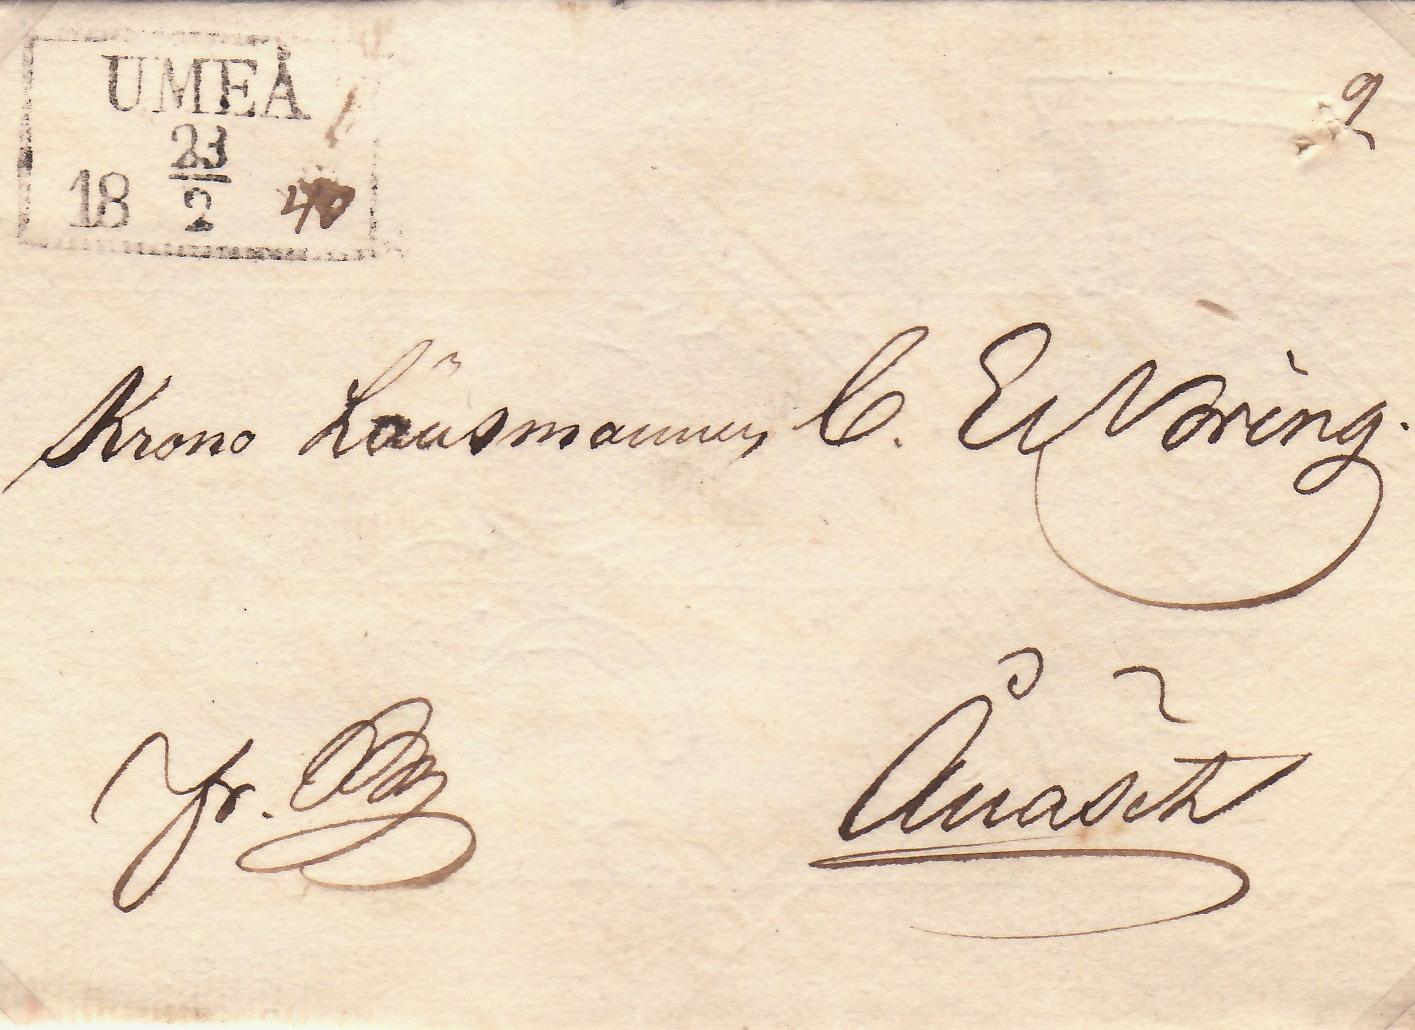 UMEÅ
23
18 2 40
2
Krono Länsmannen C. E. Noring.
Fr.
Ånäset